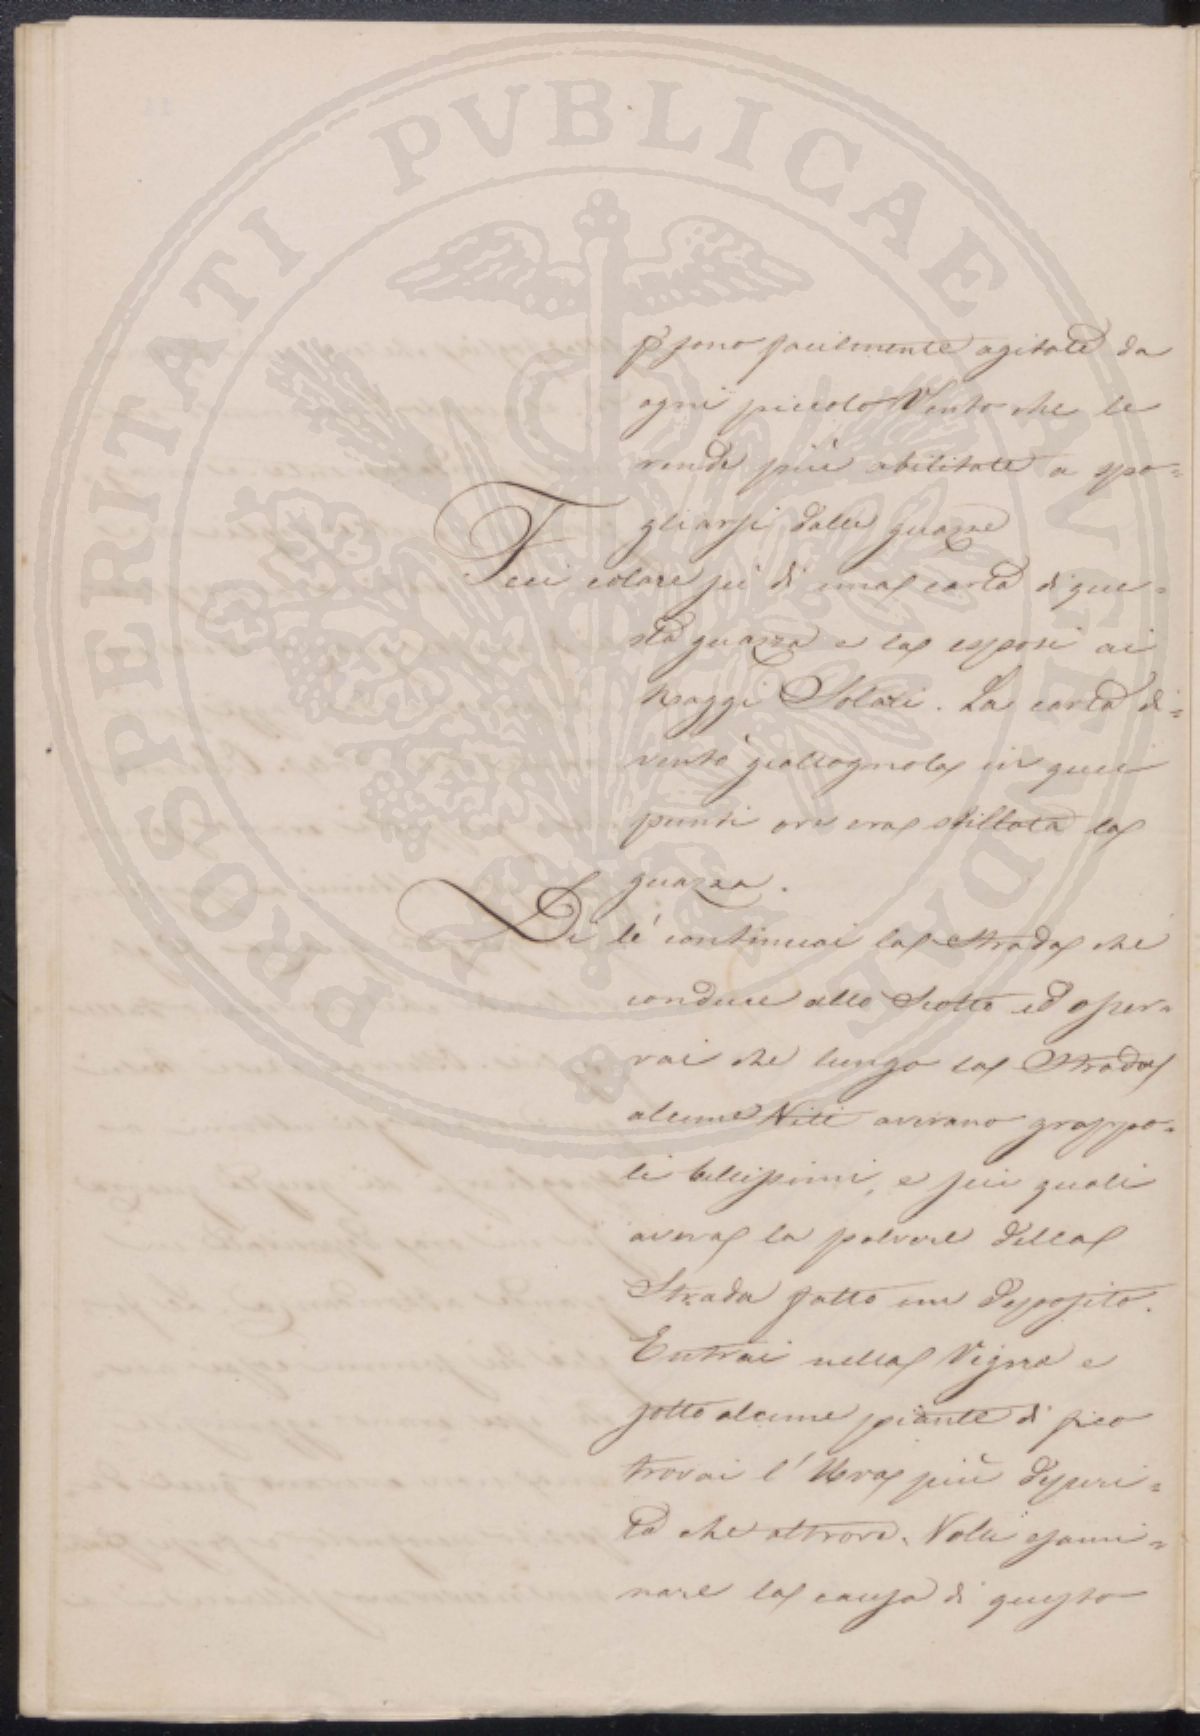 PROSPERITATI PVBLICAE AVGENDAE
sono facilmente agitate da
ogni piccolo Vento che le
rende più abilitate a spo=
gliarsi dalle guazze
Feci colare su di una carta di que=
sta guazza e la esposi ai
raggi Solari. La carta di=
ventò giallognola in quei
punti ove era stillata la
guazza.
Di lé continuai la strada che
conduce allo Scotto ed osser=
vai che lungo la Strada
alcune Viti avevano grappo=
li bellissimi, e sui quali
aveva la polvere della
Strada fatto un deposito.
Entrai nella Vigna e
sotto alcune piante di fico
trovai l'Uva più deperi=
ta che altrove. Volli esami=
nare la causa di questo